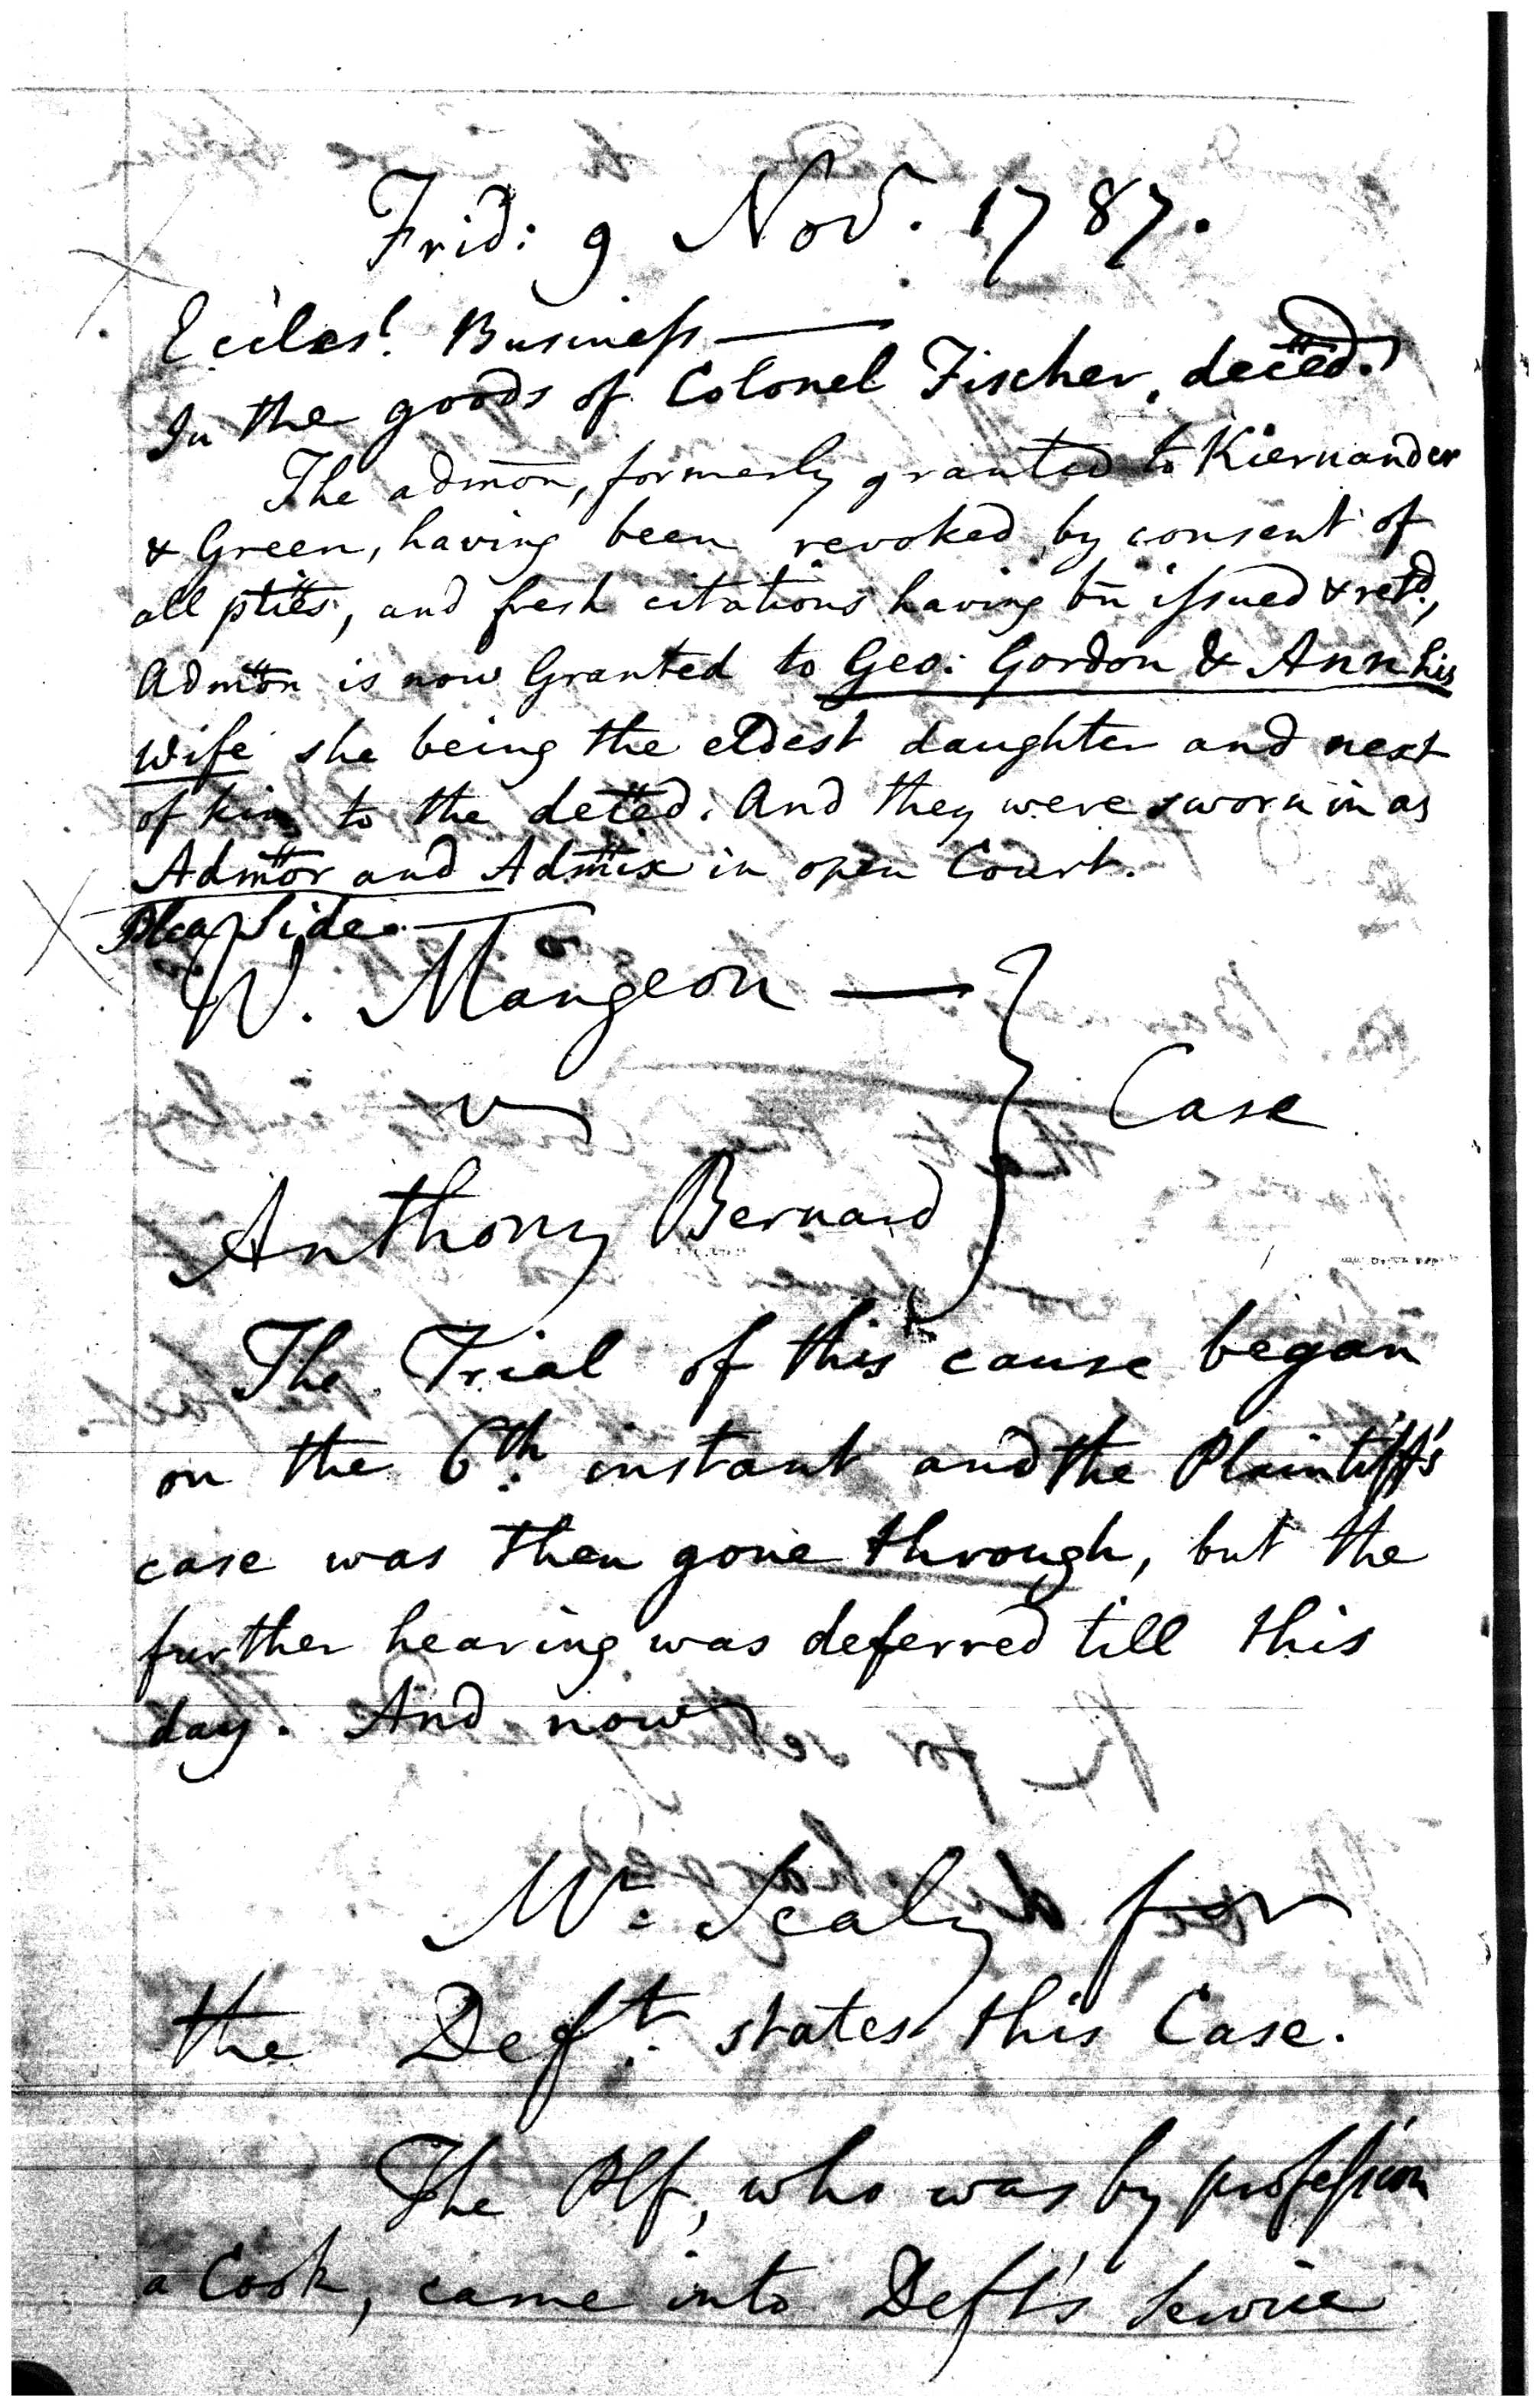 Frid: 9 Nov. 1787.
Eccles.l Business
In the goods of Colonel Fischer, deced.
The admon, formerly granted to Kiernander
& Green, having been revoked by consent of
all pties, and fresh citations having bn issued & retd,
Admon is now Granted to Geo: Gordon & Ann his
wife she being the eldest daughter and next
of kin to the deced. And they were sworn in as
Admor and Admix in open Court.
Plea Side.
W. Mangeon
v
Case
Anthony Bernard
The Trial of this cause began
on the 6th instant and the Plaintiff's
case was then gone through, but the
further hearing was deferred till this
day. And now
Mr. Sealy for
the Deft. states this Case.
The Plf, who was by profession
a Cook, came into Deft's Service